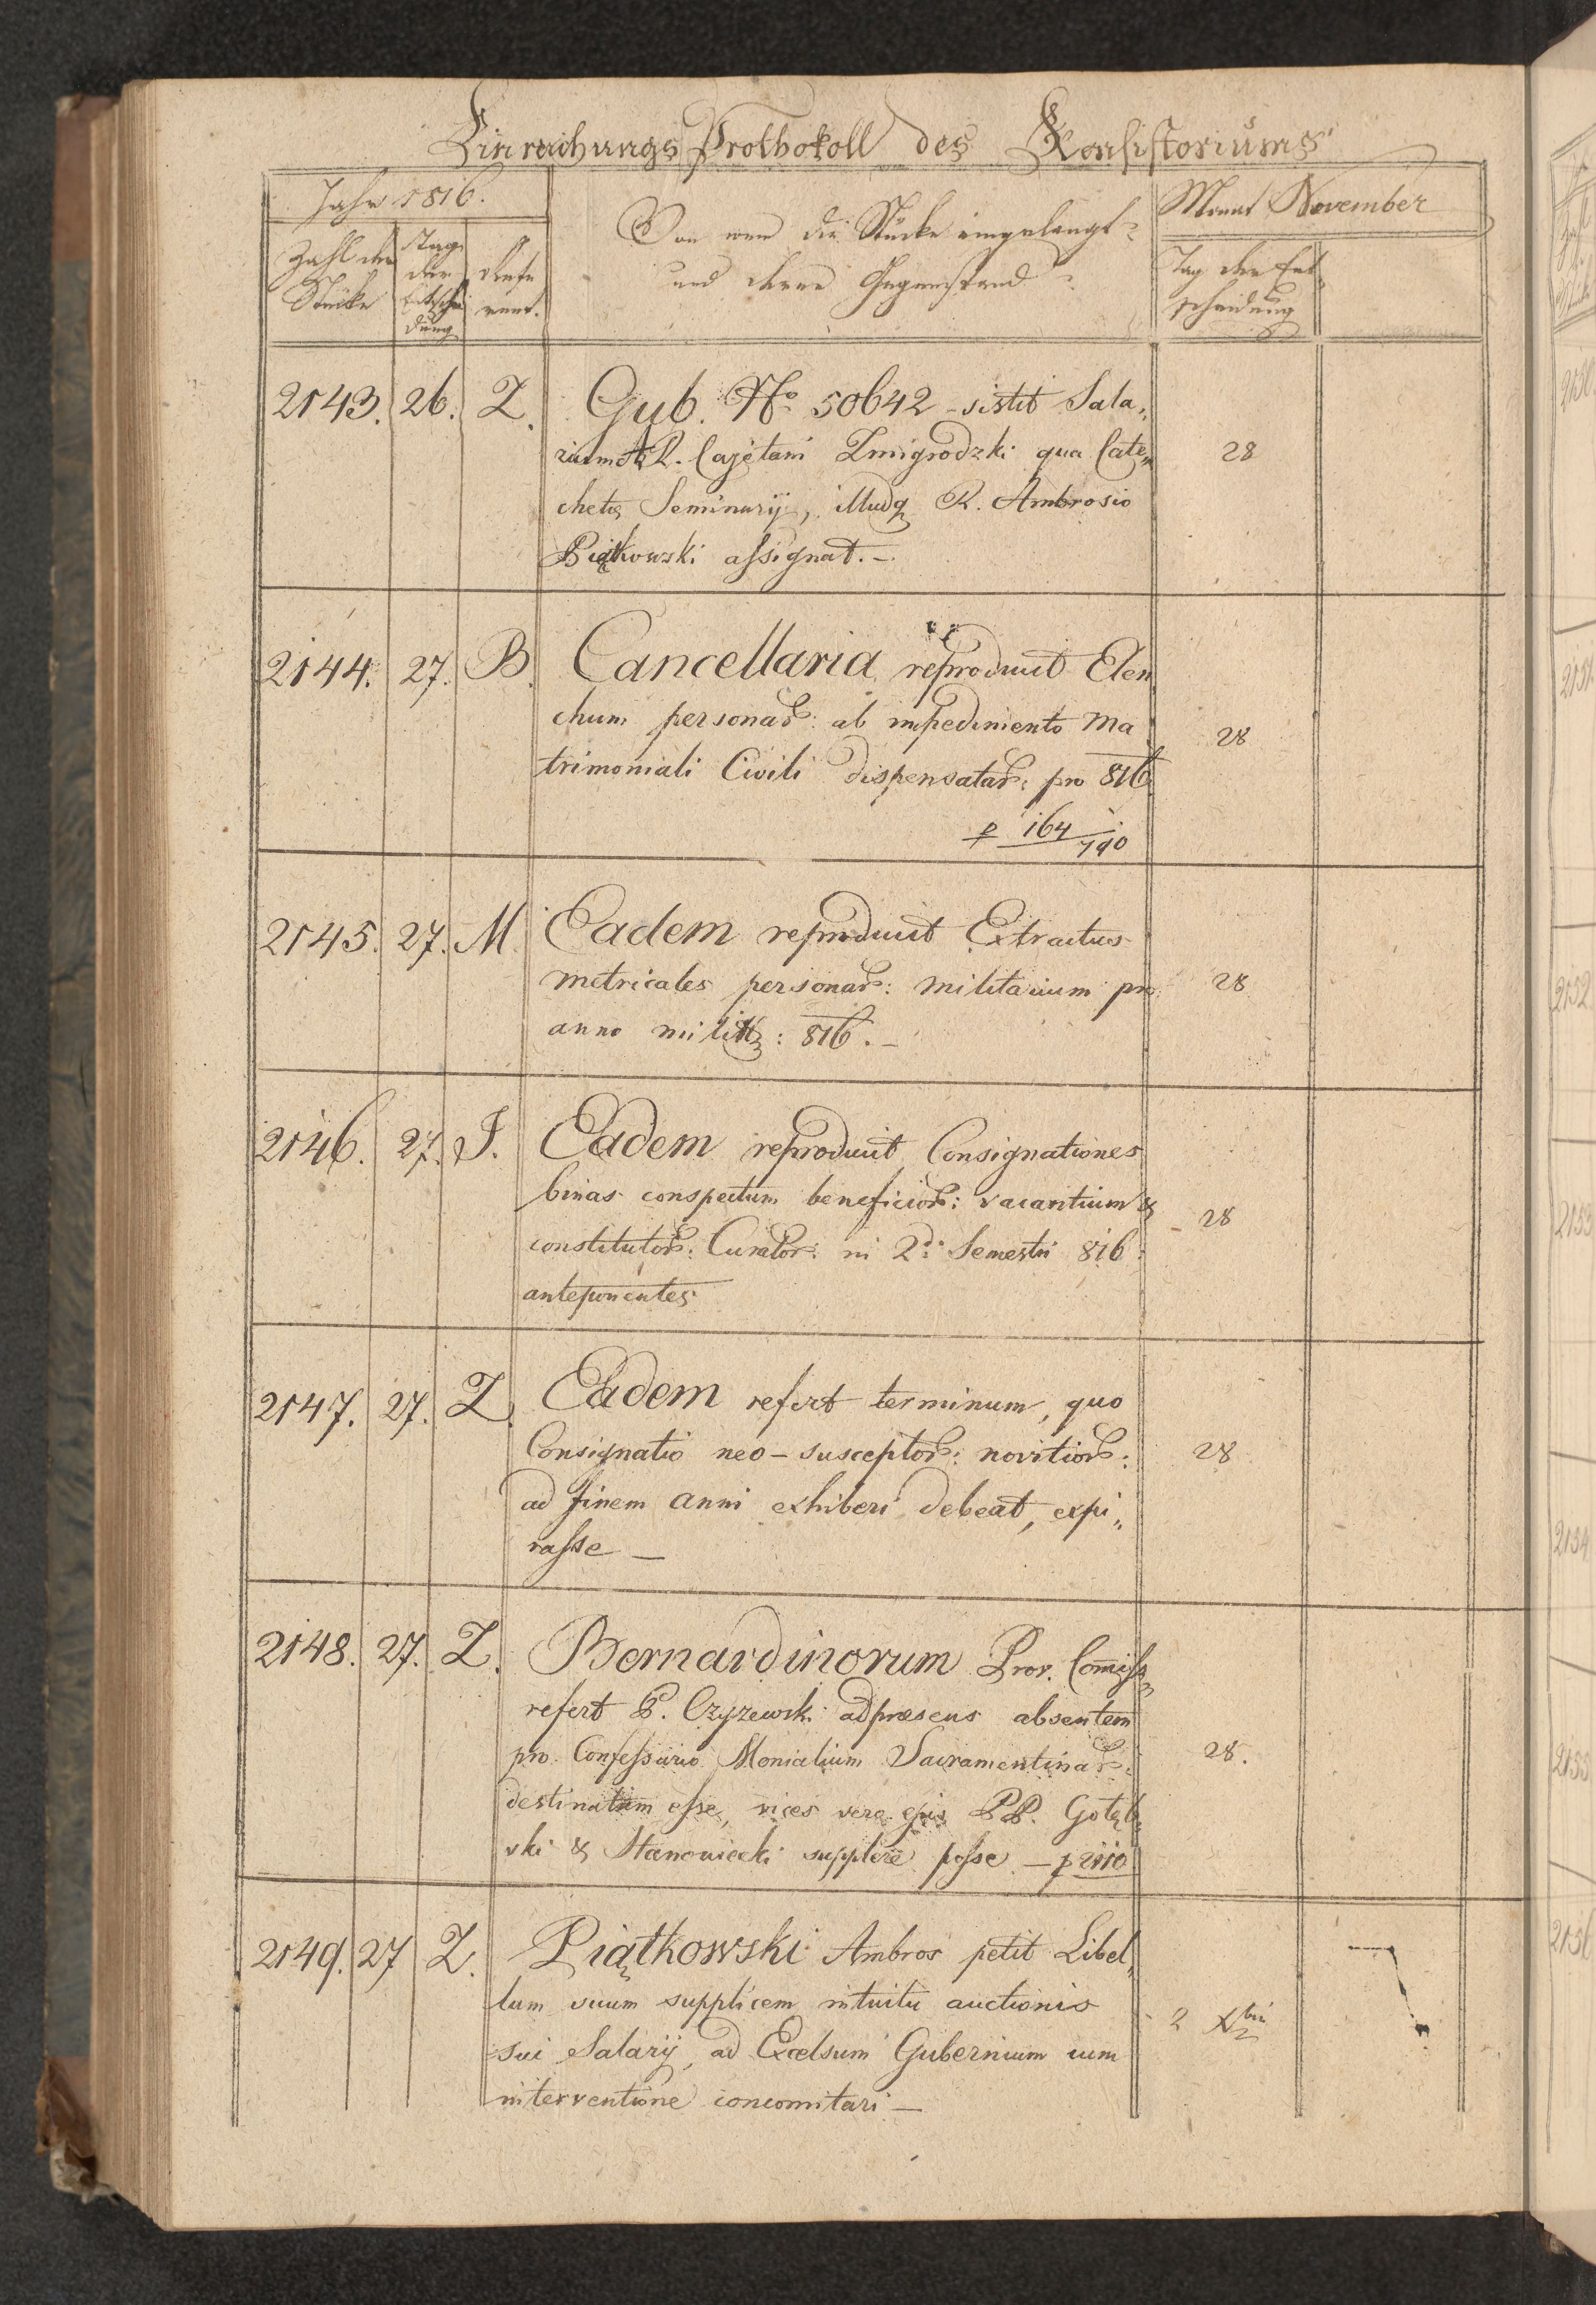 Einreichungs Prothokoll des Konsistoriums
Jahr 1816.
Monat November
Zahl der Stücke
Tag der Entscheidung
Referent.
Von wem die Stücke eingelangt
und deren Gegenstand
Tag der Entscheidung
2143. 26. Z. Gub. No. 50642 sistit Sala„ 28
rium A. R. Cajetani Zmigrodzki qua Cate„
chetę Seminarij, illudq R. Ambrosio
Piątkowski assignat. –
2144. 27. B. Cancellaria reproducit Elen 28
chum personar: ab impedimento Ma
trimoniali Civili dispensatar: pro 816
p 164/790
2145. 27. M. Eadem reproducit Extractus 28
metricales personar: militarium pro
anno milit: 816. –
2146. 27. J. Eadem reproducit Consignationes 28
binas conspectum beneficior: vacantium &
constitutor: Curator: in 2di Semestri 816:
anteponentes
2147. 27. Z. Eadem refert terminum, quo 28
Consignatio neo-susceptor: novitior:
ad finem anni exhiberi debeat, expi„
rasse –
2148. 27. Z. Bernardinorum Prov. Comiss„ 28.
refert P. Czyzewski ad præsens absentem
pro Confessario Monialium Sacramentinar:
destinatum esse, vices vero ejus PP. Gołęb„
ski & Stanowiecki supplere posse – p 2110
2149. 27 Z. Piątkowski Ambros petit Libel„ 2 Xbri
lum suum supplicem intuitu auctionis
sui Salarij, ad Excelsum Gubernium cum
interventione concomitari –